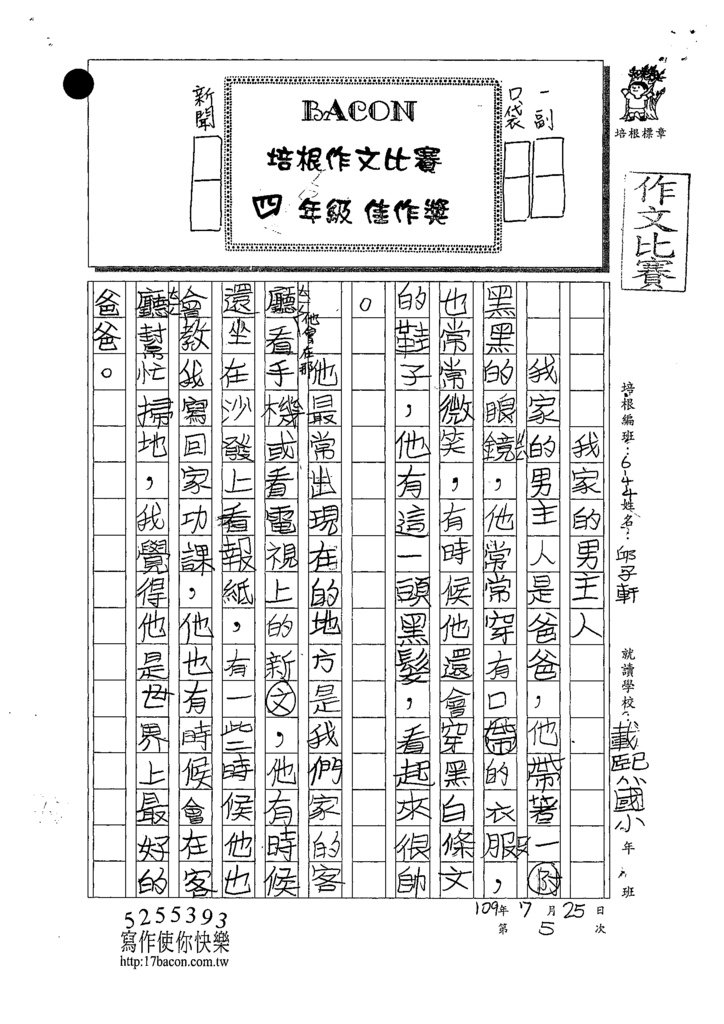 培根標章
作文比賽
一副
口袋
BACON
培根作文比賽
四年級 佳作獎
新聞
培根編班：6-44 姓名：邱子軒 就讀學校：戴熙國小 年 班
我家的男主人
我家的男主人是爸爸，他帶著一附
黑黑的眼鏡，他常常穿有口帶的衣服，
也常常微笑，有時候他還會穿黑白條文
的鞋子，他有這一頭黑髮，看起來很帥
。
他最常出現在的地方是我們家的客
廳他會在那看手機或看電視上的新文，他有時候
還坐在沙發上看報紙，有一些時候他也
會教我寫回家功課，他也有時候會在客
廳幫忙掃地，我覺得他是世界上最好的
爸爸。
109年 7月 25日
第 5 次
5255393
寫作使你快樂
http:17bacon.com.tw